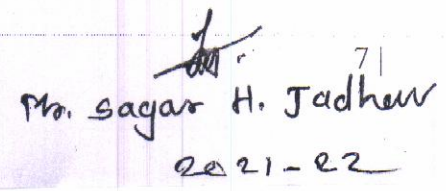 71
Mr. Sagar H. Jadhav
2021-22